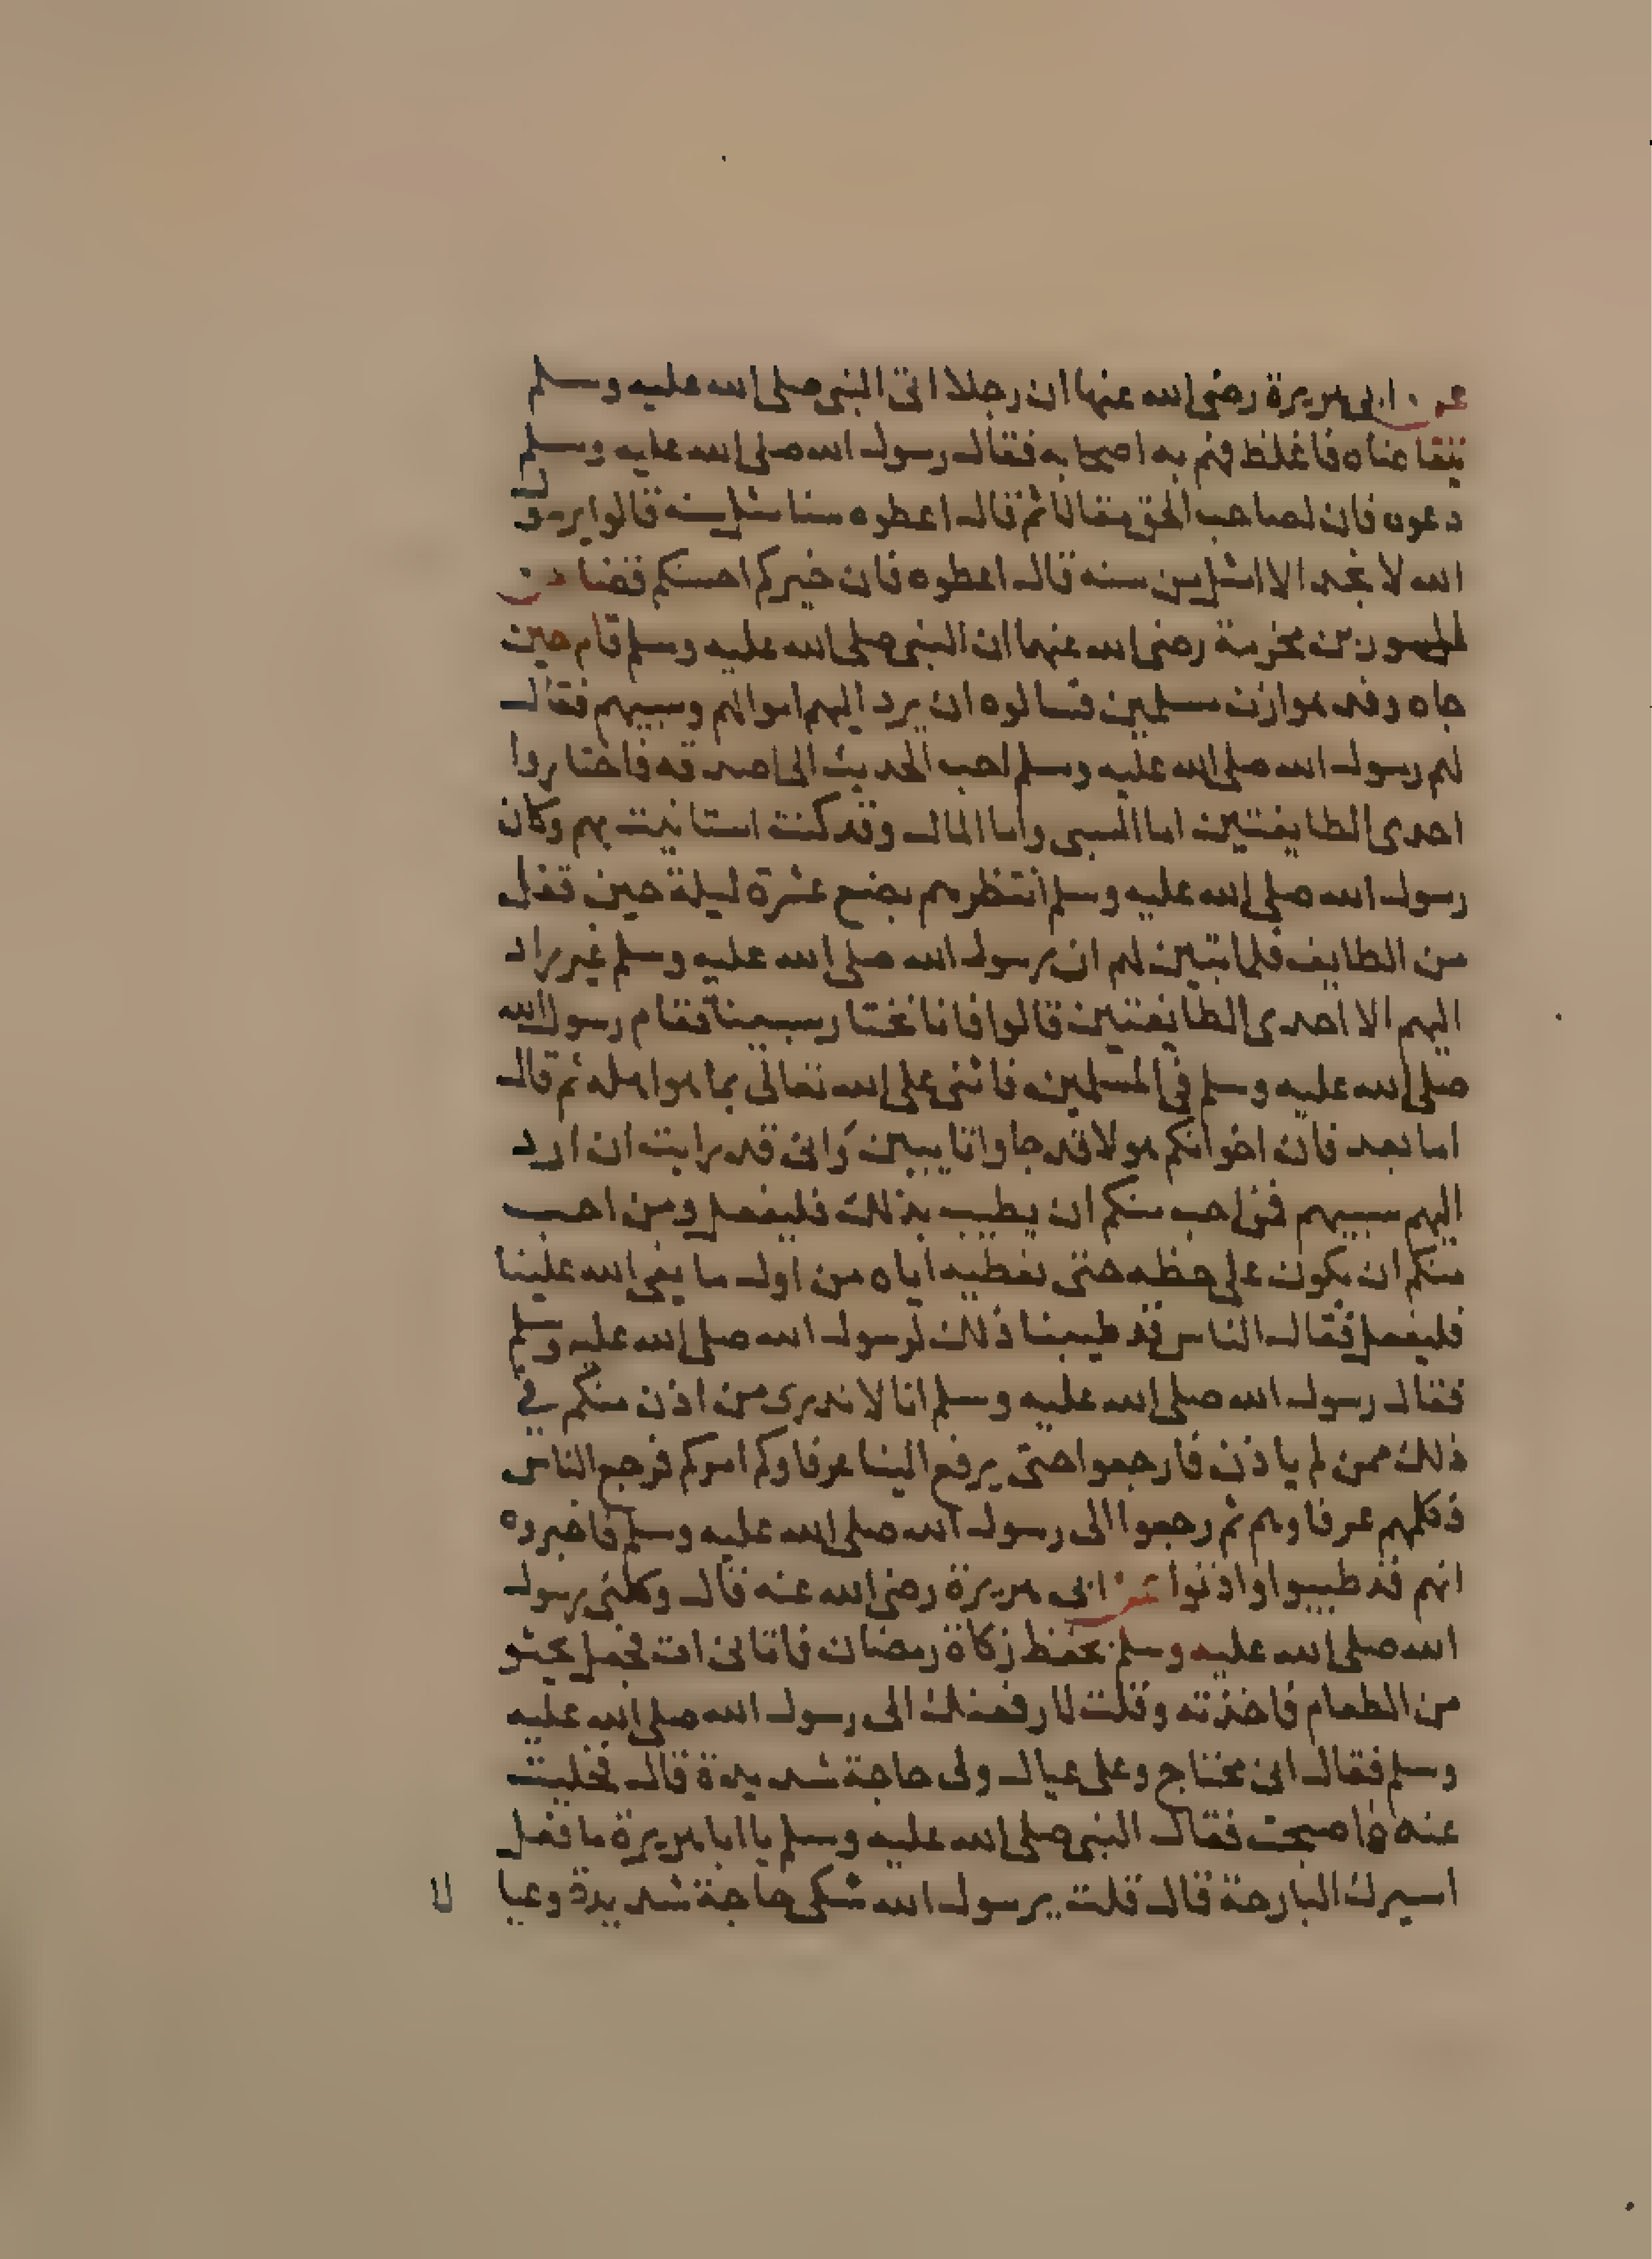 عن ابى هريرة رضى الله عنها ان رجلا اتى النبى صلى الله عليه وسلم
يتقاضاه فاغلظ فهم به اصحابه فقال رسول الله صلى الله عليه وسلم
دعوه فان لصاحب الحق مقالا ثم قال اعطوه سنا مثل سنه قالوا يرسول
الله لا نجد الا امثل من سنه قال اعطوه فان خيركم احسنكم قضا عن
المسور بن مخرمة رضى الله عنهما ان النبى صلى الله عليه وسلم قام حين
جاه وفد هوازن مسلمين فسالوه ان يرد اليهم اموالهم وسبيهم فقال
لهم رسول الله صلى الله عليه وسلم احب الحديث الى اصدقه فاختاروا
احدى الطايفتين اما السبى واما المال وقد كنت استانيت بهم وكان
رسول الله صلى الله عليه وسلم انتظرهم بضع عشرة ليلة حين قفل
من الطايف فلما تبين لهم ان رسول الله صلى الله عليه وسلم غير راد
اليهم الا احدى الطايفتين قالوا فانا نختار سبينا فقام رسول الله
صلى الله عليه وسلم فى المسلمين فاثنى على الله تعالى بما هو اهله ثم قال
اما بعد فان اخوانكم هولا قد جاوا تايبين وانى قد رايت ان ارد
اليهم سبيهم فمن احب منكم ان يطيب بذلك فليفعل ومن احب
منكم ان يكون على حظه حتى نعطيه اياه من اول ما يفى الله علينا
فليفعل فقال الناس قد طيبنا ذلك لرسول الله صلى الله عليه وسلم
فقال رسول الله صلى الله عليه وسلم انا لا ندرى من اذن منكم في
ذلك ممن لم ياذن فارجعوا حتى يرفع الينا عرفاوكم امركم فرجع الناس
فكلمهم عرفاوهم ثم رجعوا الى رسول الله صلى الله عليه وسلم فاخبروه
انهم قد طيبوا واذنوا عن ابى هريرة رضى الله عنه قال وكلنى رسول
الله صلى الله عليه وسلم بحفظ زكاة رمضان فاتانى ات فجعل يحثو
من الطعام فاخذته وقلت لارفعنك الى رسول الله صلى الله عليه
وسلم فقال انى محتاج وعلى عيال ولى حاجة شديدة قال فخليت
عنه فاصبحت فقال النبى صلى الله عليه وسلم يا ابا هريرة ما فعل
اسيرك البارحة قال قلت يرسول الله شكى حاجة شديدة وعيا لا